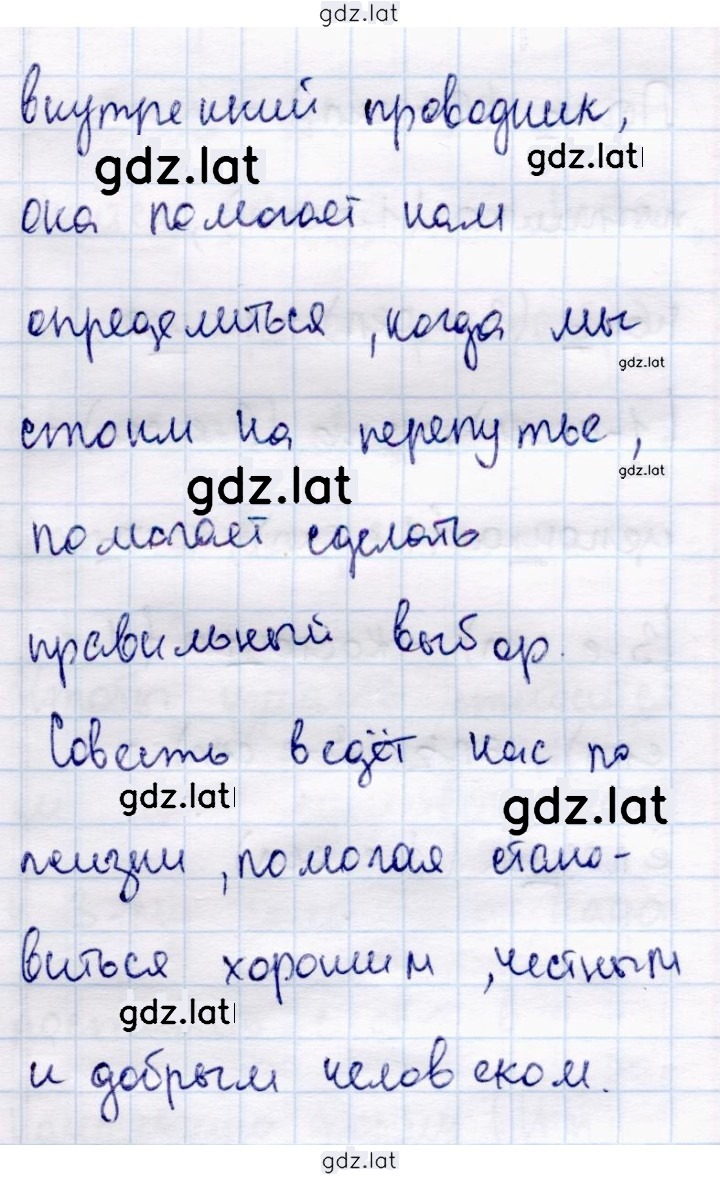 gdz.lat
внутренний проводник,
gdz.lat gdz.lat
она помогает нам
определиться, когда мы
gdz.lat
стоим на перепутье,
gdz.lat gdz.lat
помогает сделать
правильный выбор.
Совесть ведёт нас по
gdz.lat gdz.lat
жизни, помогая стано-
виться хорошим, честным
gdz.lat
и добрым человеком.
gdz.lat